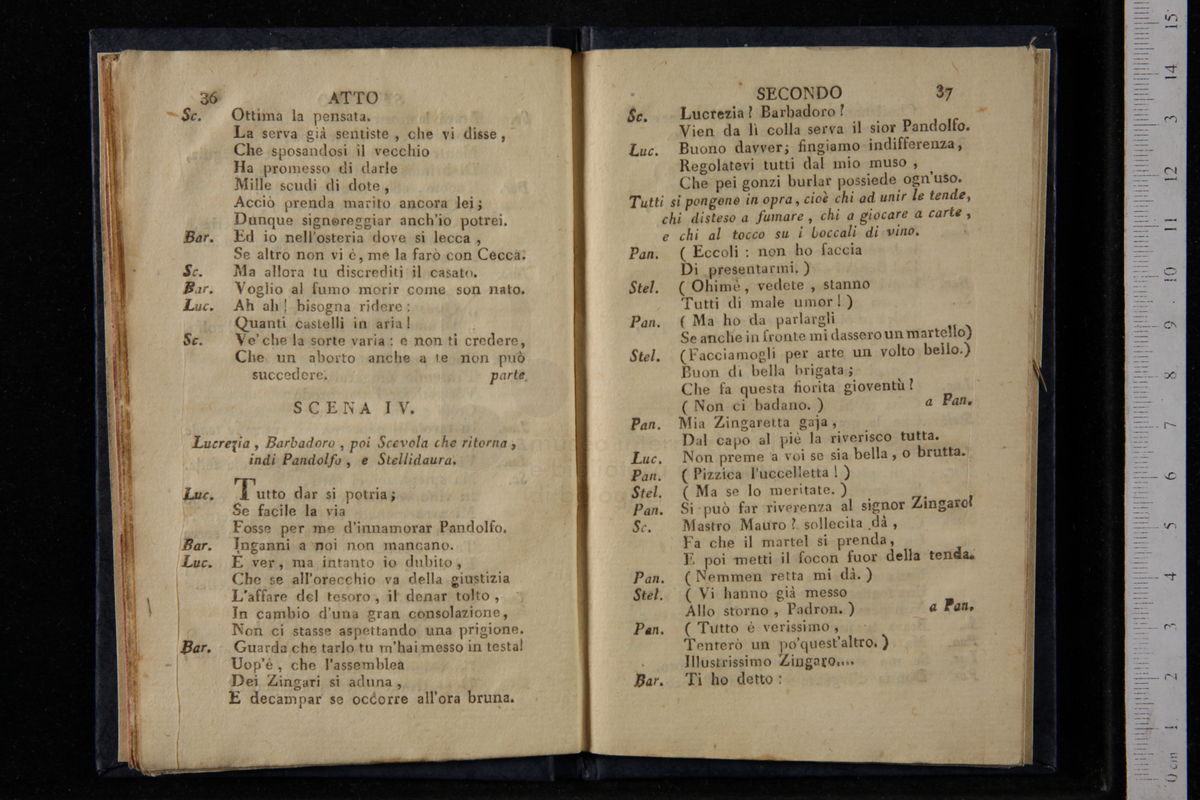 36 ATTO
Sc. Ottima la pensata.
La serva già sentiste , che vi disse ,
Che sposandosi il vecchio
Ha promesso di darle
Mille scudi di dote ,
Acciò prenda marito ancora lei ;
Dunque signoreggiar anch'io potrei.
Bar. Ed io nell'osteria dove si lecca ,
Se altro non vi è , me la farò con Cecca.
Sc. Ma allora tu discrediti il casato.
Bar. Voglio al fumo morir come son nato.
Luc. Ah ah ! bisogna ridere :
Quanti castelli in aria !
Sc. Ve' che la sorte varia : e non ti credere,
Che un aborto anche a te non può
succedere. parte.
SCENA IV.
Lucrezia , Barbadoro , poi Scevola che ritorna ,
indi Pandolfo , e Stellidaura.
Luc. Tutto dar si potria ;
Se facile la via
Fosse per me d'innamorar Pandolfo.
Bar. Inganni a noi non mancano.
Luc. E ver , ma intanto io dubito ,
Che se all'orecchio va della giustizia
L'affare del tesoro , il denar tolto ,
In cambio d'una gran consolazione,
Non ci stasse aspettando una prigione.
Bar. Guarda che tarlo tu m'hai messo in testa!
Uop'è , che l'assemblea
Dei Zingari si aduna ,
E decampar se occorre all'ora bruna.
SECONDO 37
Sc. Lucrezia ? Barbadoro ?
Vien da lì colla serva il sior Pandolfo.
Luc. Buono davver ; fingiamo indifferenza,
Regolatevi tutti dal mio muso ,
Che pei gonzi burlar possiede ogn'uso.
Tutti si pongono in opra , cioè chi ad unir le tende,
chi disteso a fumare , chi a giocare a carte ,
e chi al tocco su i boccali di vino.
Pan. ( Eccoli : non ho faccia
Di presentarmi. )
Stel. ( Ohimè , vedete , stanno
Tutti di male umor ! )
Pan. ( Ma ho da parlargli
Se anche in fronte mi dassero un martello)
Stel. (Facciamogli per arte un volto bello.)
Buon dì bella brigata ;
Che fa questa fiorita gioventù ?
( Non ci badano. ) a Pan.
Pan. Mia Zingaretta gaja ,
Dal capo al piè la riverisco tutta.
Luc. Non preme a voi se sia bella , o brutta.
Pan. ( Pizzica l'uccelletta ! )
Stel. ( Ma se lo meritate. )
Pan. Si può far riverenza al signor Zingaro?
Sc. Mastro Mauro ? sollecita , dà ,
Fa che il martel si prenda ,
E poi metti il focon fuor della tenda.
Pan. ( Nemmen retta mi dà. )
Stel. ( Vi hanno già messo
Allo storno , Padron. ) a Pan.
Pan. ( Tutto è verissimo ,
Tenterò un po'quest'altro. )
Illustrissimo Zingaro....
Bar. Ti ho detto :